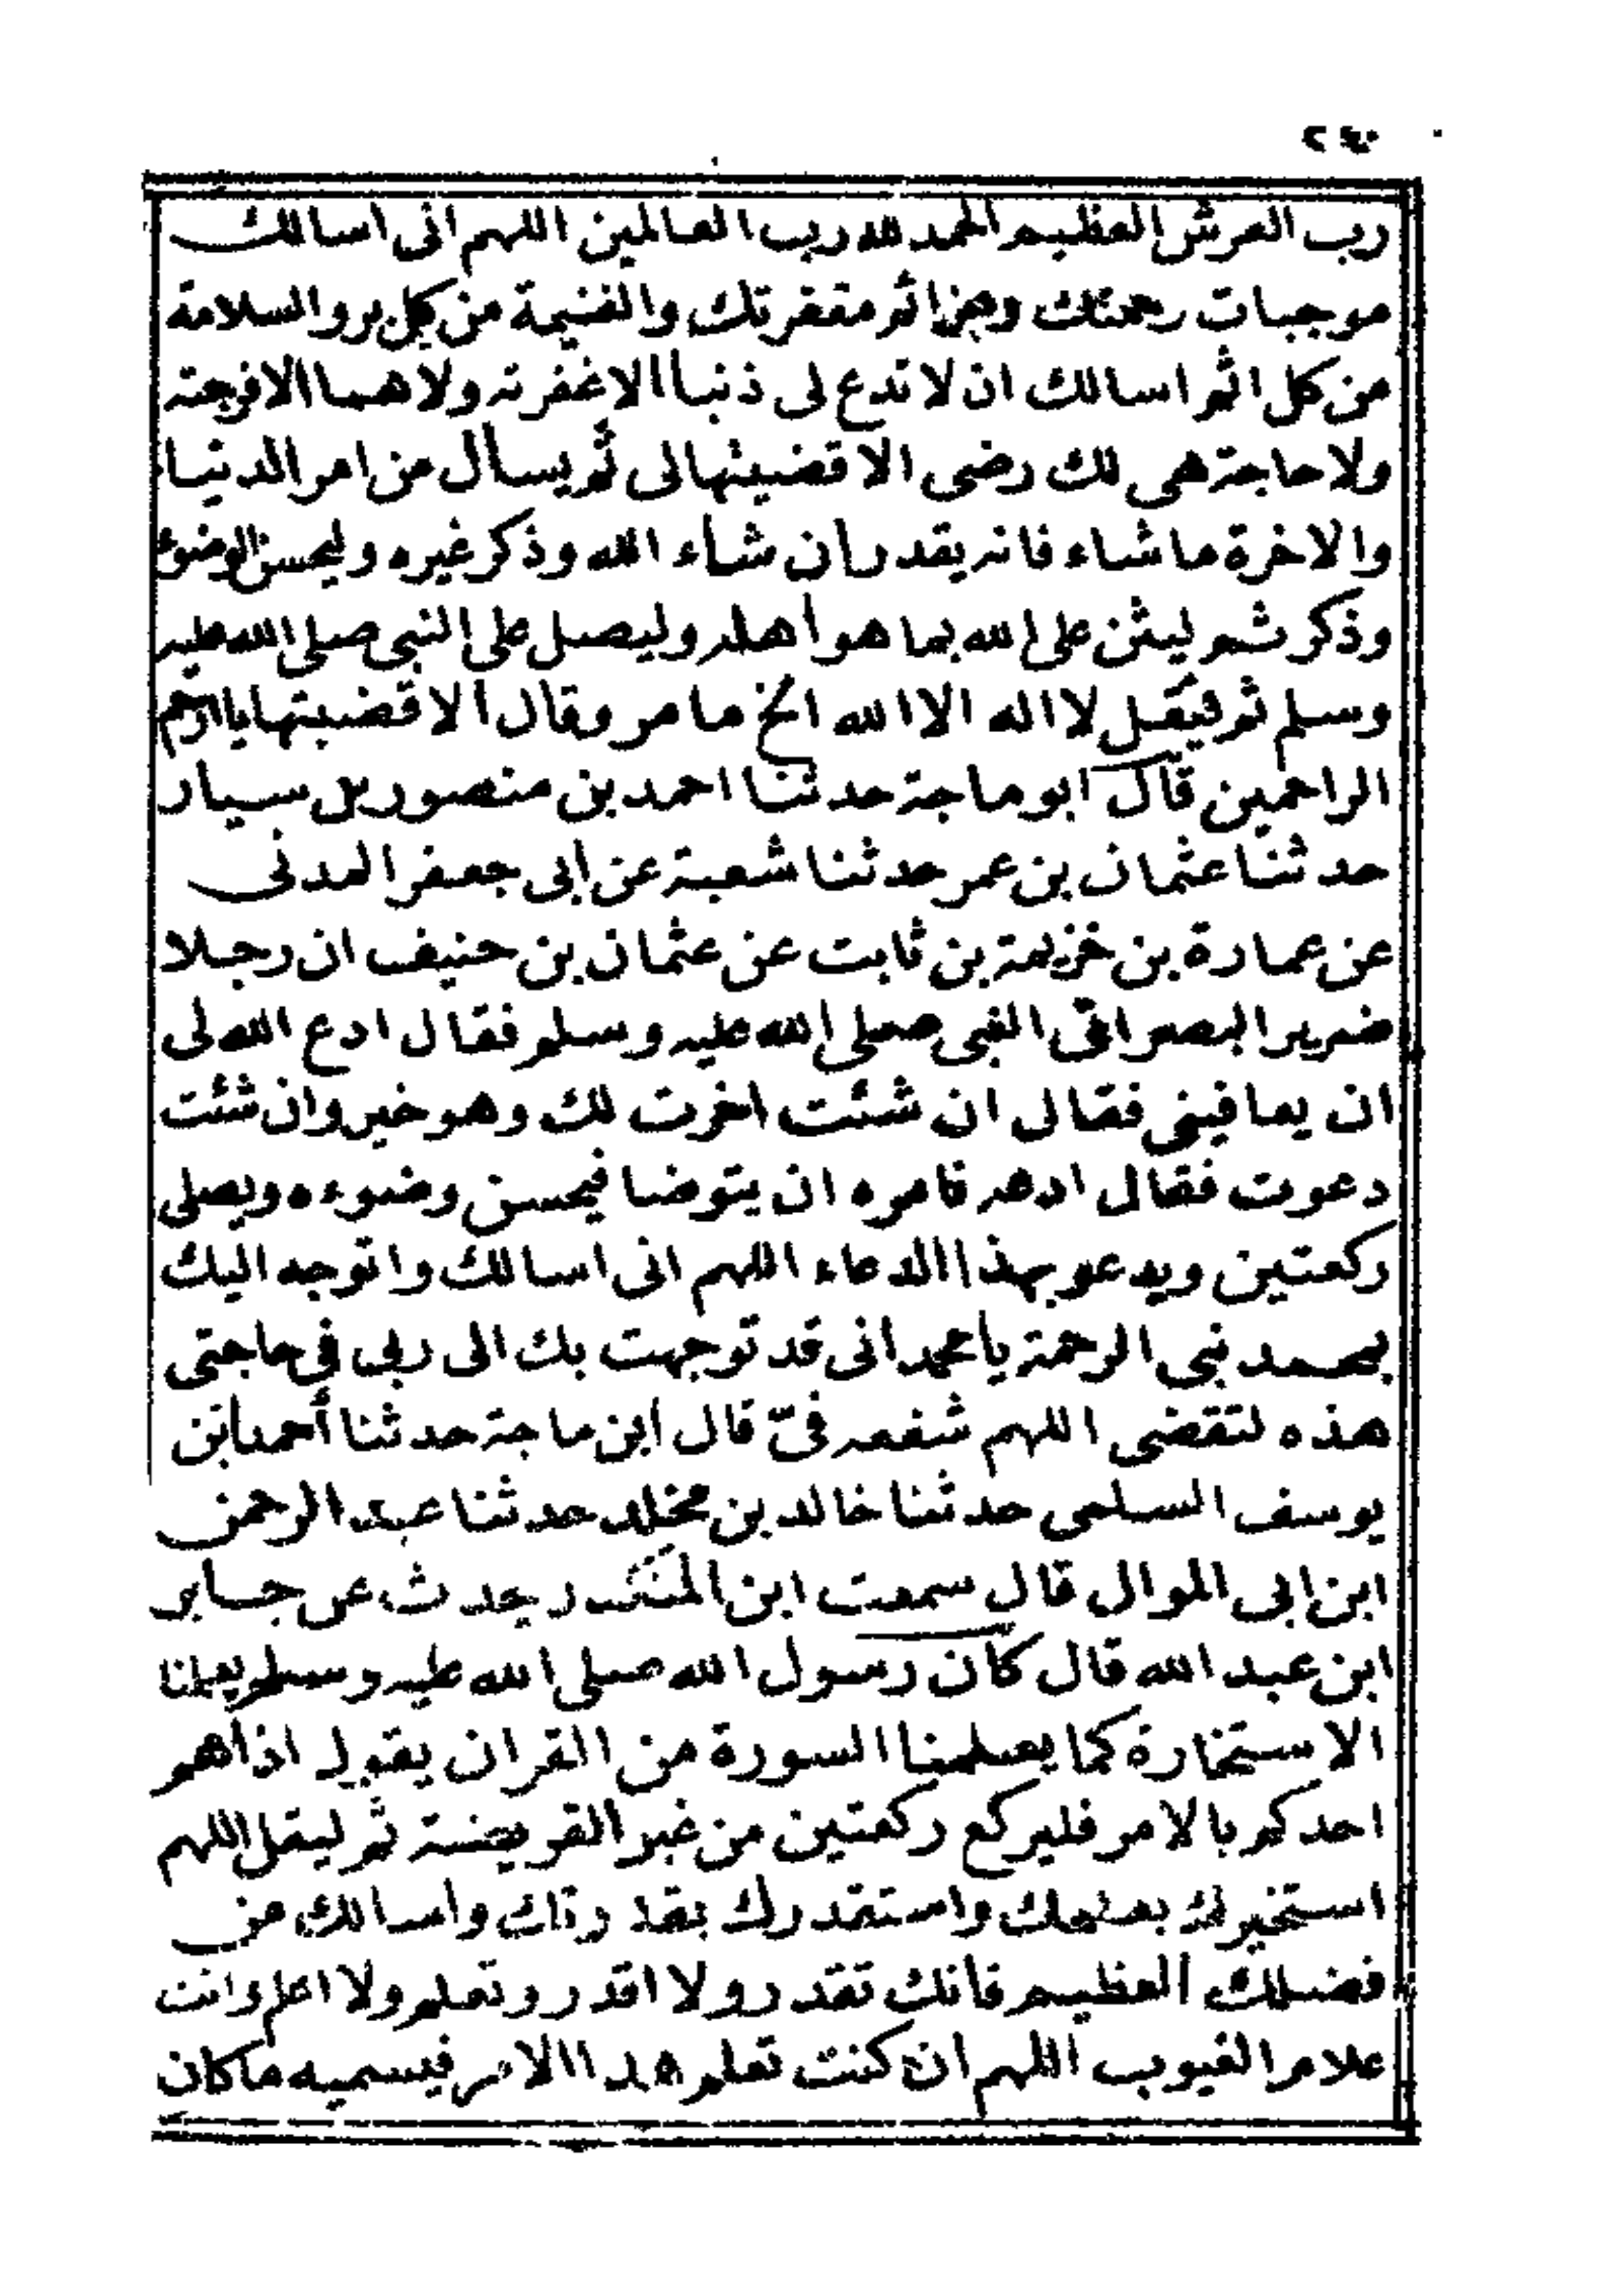 ٢٤٠
رب العرش العظيم الحمد لله رب العالمين اللهم انى اسالك
موجبات رحمتك وعزائم مغفرتك والغنيمة من كل بر والسلامة
من كل اثم اسالك ان لا تدع لى ذنبا الا غفرته ولا هما الا فرجته
ولا حاجة هى لك رضى الا قضيتها لى ثم يسأل من امر الدنيا
والاخرة ما شاء فانه يقدر ان شاء الله وذكر غيره وليحسن الوضوء
وذكر ثم ليثن على الله بما هو أهله وليصل على النبى صلى الله عليه
وسلم ثم ليقل لا اله الا الله الخ ما مر وقال الا قضيتها يا ارحم
الراحمين قال ابو ماجة حدثنا احمد بن منصور بن سيار
حدثنا عثمان بن عمر حدثنا شعبة عن ابى جعفر المدنى
عن عمارة بن خزيمة بن ثابت عن عثمان بن حنيف ان رجلا
ضرير البصر اتى النبى صلى الله عليه وسلم فقال ادع الله لى
ان يعافينى فقال ان شئت اخرت لك وهو خير وان شئت
دعوت فقال ادعه فامره ان يتوضا فيحسن وضوءه ويصلى
ركعتين ويدعو بهذا الدعاء اللهم انى اسالك واتوجه اليك
بمحمد نبى الرحمة يا محمد انى قد توجهت بك الى ربى فى حاجتى
هذه لتقضى اللهم شفعه فىّ قال ابن ماجة حدثنا أحمد ابن
يوسف السلمى حدثنا خالد بن مخلد حدثنا عبد الرحمن
ابن ابى الموال قال سمعت ابن المنكدر يحدث عن جابر
ابن عبد الله قال كان رسول الله صلى الله عليه وسلم يعلمنا
الاستخارة كما يعلمنا السورة من القران يقول اذا هم
احدكم بالامر فليركع ركعتين من غير الفريضة ثم ليقل اللهم
استخيرك بعلمك واستقدرك بقدرتك واسالك من
فضلك العظيم فانك تقدر ولا اقدر وتعلم ولا اعلم وانت
علام الغيوب اللهم ان كنت تعلم هذا الامر فيسميه ما كان